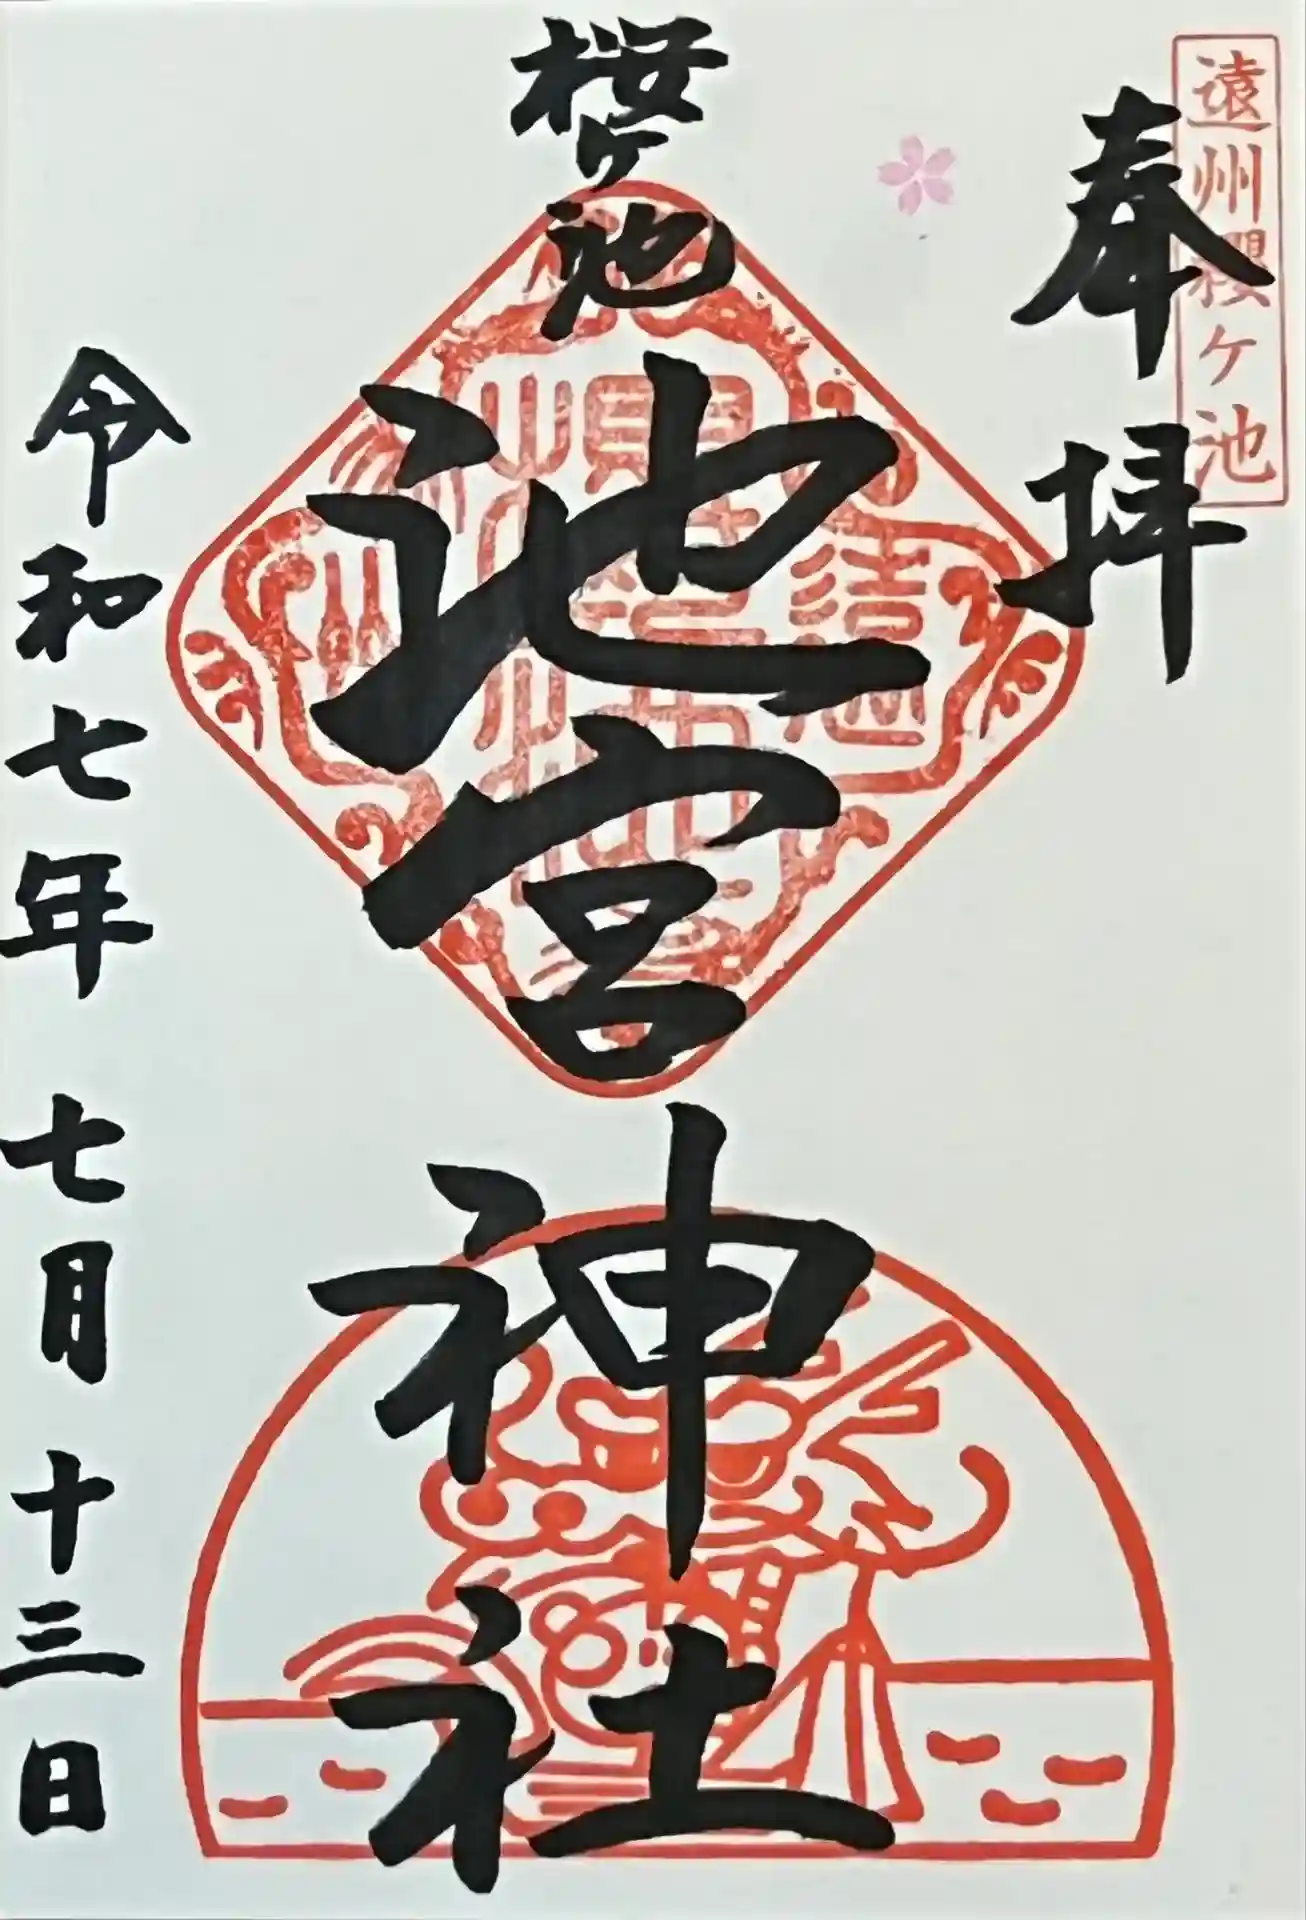 遠州櫻ケ池
奉拝
桜ヶ池
池宮神社
令和七年 七月十三日